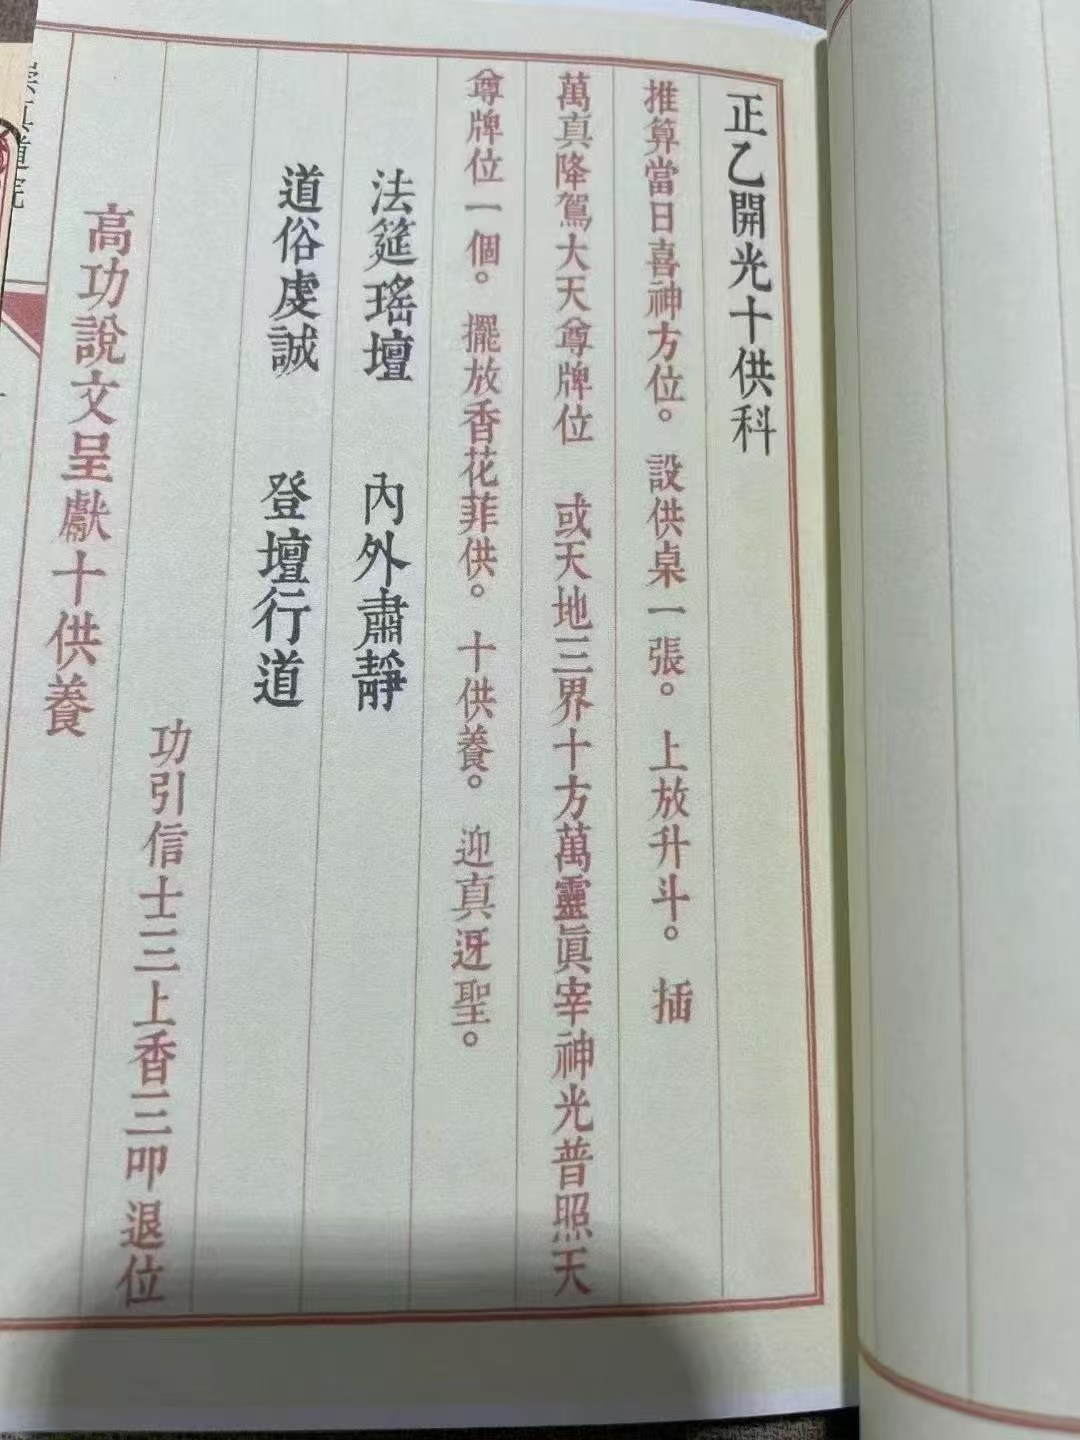 正乙開光十供科
推算當日喜神方位。設供桌一張。上放升斗。插
萬真降駕大天尊牌位　或天地三界十方萬靈眞宰神光普照天
尊牌位一個。擺放香花菲供。十供養。迎真迓聖。
法筵瑤壇　內外肅靜
道俗虔誠　登壇行道
功引信士三上香三叩退位
高功說文呈獻十供養